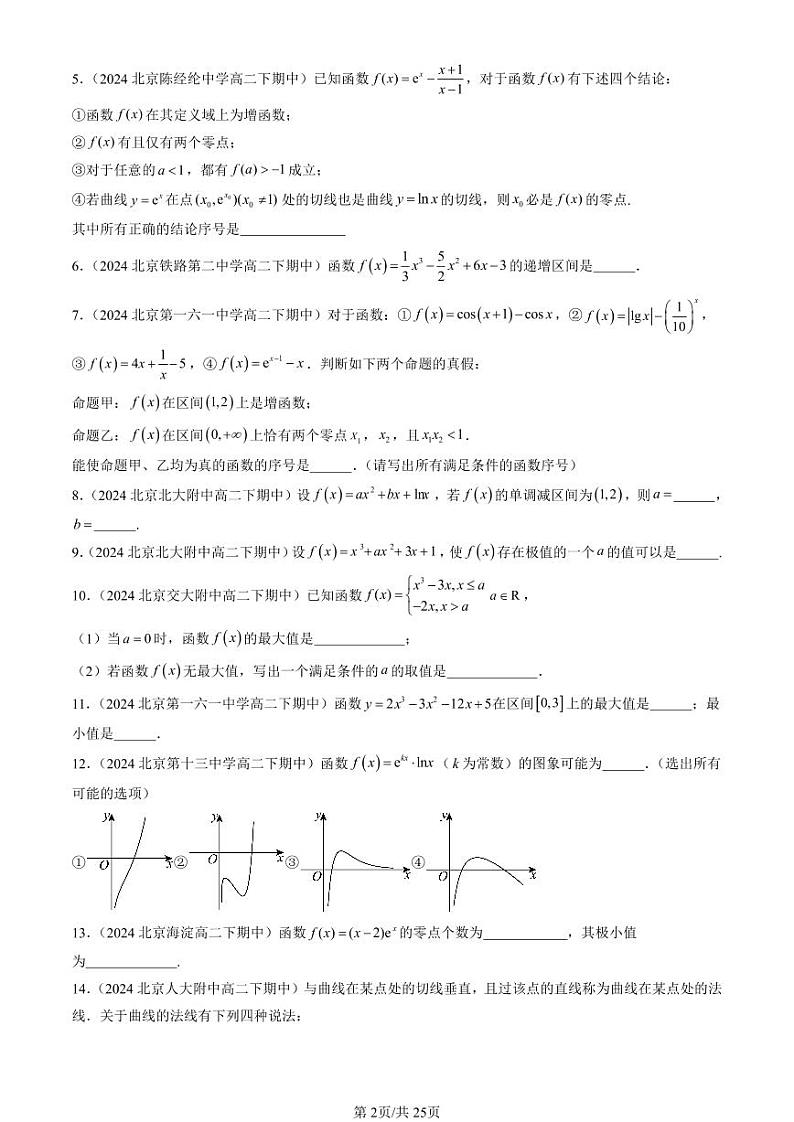 5.（2024 北京陈经纶中学高二下期中）已知函数 f(x) = e^x − (x+1)/(x−1)，对于函数 f(x) 有下述四个结论：
①函数 f(x) 在其定义域上为增函数；
② f(x) 有且仅有两个零点；
③对于任意的 a < 1，都有 f(a) > −1 成立；
④若曲线 y = e^x 在点 (x₀, e^{x₀})(x₀ ≠ 1) 处的切线也是曲线 y = ln x 的切线，则 x₀ 必是 f(x) 的零点.
其中所有正确的结论序号是_______________
6.（2024 北京铁路第二中学高二下期中）函数 f(x) = 1/3 x³ − 5/2 x² + 6x − 3 的递增区间是______．
7.（2024 北京第一六一中学高二下期中）对于函数：① f(x) = cos(x+1) − cos x，② f(x) = |lg x| − (1/10)^x，
③ f(x) = 4x + 1/x − 5，④ f(x) = e^{x−1} − x．判断如下两个命题的真假：
命题甲：f(x) 在区间 (1,2) 上是增函数；
命题乙：f(x) 在区间 (0,+∞) 上恰有两个零点 x₁，x₂，且 x₁x₂ < 1．
能使命题甲、乙均为真的函数的序号是______．（请写出所有满足条件的函数序号）
8.（2024 北京北大附中高二下期中）设 f(x) = ax² + bx + lnx，若 f(x) 的单调减区间为 (1,2)，则 a = ______，
b = ______．
9.（2024 北京北大附中高二下期中）设 f(x) = x³ + ax² + 3x + 1，使 f(x) 存在极值的一个 a 的值可以是______．
10.（2024 北京交大附中高二下期中）已知函数 f(x) = { x³ − 3x, x ≤ a −2x, x > a a ∈ R，
（1）当 a = 0 时，函数 f(x) 的最大值是_____________；
（2）若函数 f(x) 无最大值，写出一个满足条件的 a 的取值是_____________．
11.（2024 北京第一六一中学高二下期中）函数 y = 2x³ − 3x² − 12x + 5 在区间 [0,3] 上的最大值是______；最
小值是______．
12.（2024 北京第十三中学高二下期中）函数 f(x) = e^{kx} · lnx（k 为常数）的图象可能为______．（选出所有
可能的选项）
① y O x ② y O x ③ y O x ④ y O x
13.（2024 北京海淀高二下期中）函数 f(x) = (x − 2)e^x 的零点个数为____________，其极小值
为_____________．
14.（2024 北京人大附中高二下期中）与曲线在某点处的切线垂直，且过该点的直线称为曲线在某点处的法
线．关于曲线的法线有下列四种说法：
第 2页/共 25页